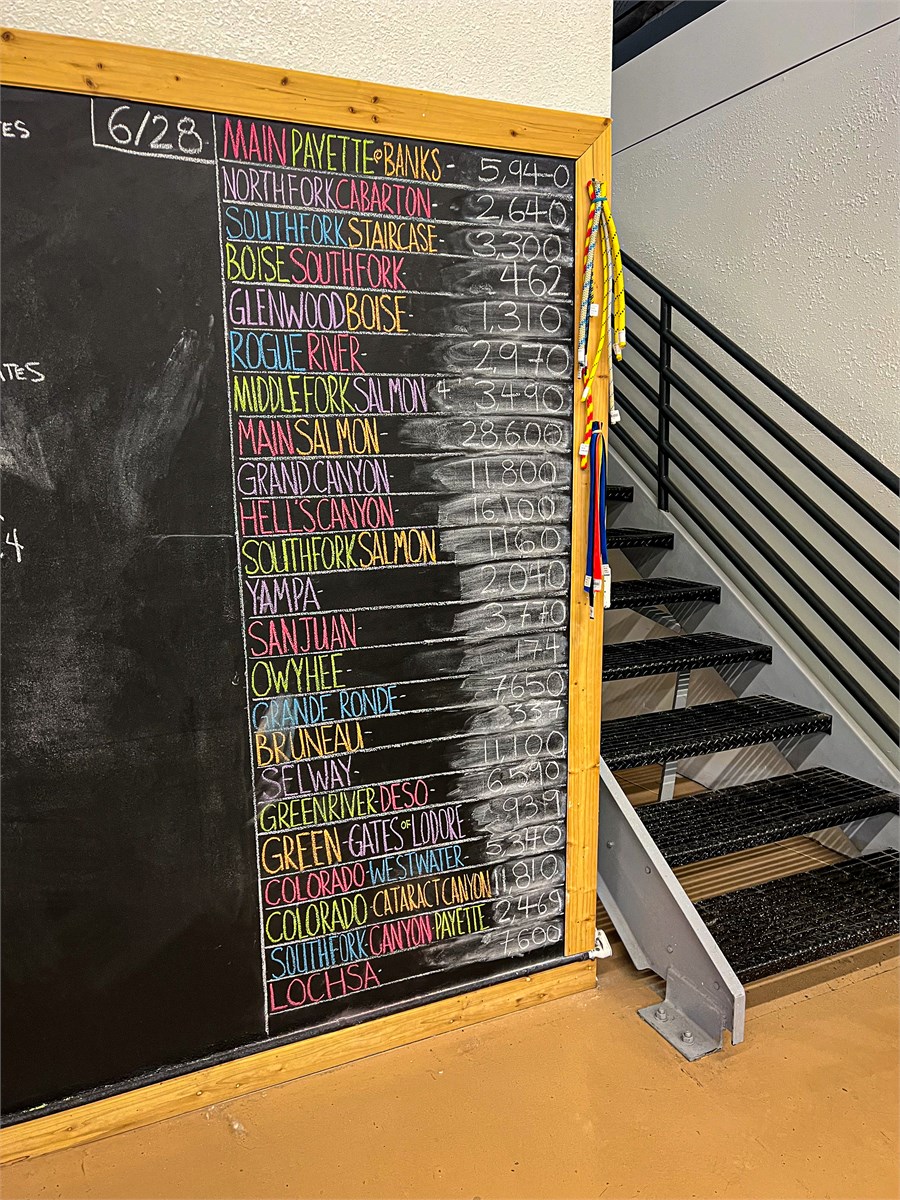 6/28
MAIN PAYETTE @ BANKS - 5,940
NORTH FORK CABARTON - 2,640
SOUTH FORK STAIRCASE - 3,300
BOISE SOUTH FORK - 462
GLENWOOD BOISE - 1,310
ROGUE RIVER - 2,970
MIDDLE FORK SALMON 4' 3490
MAIN SALMON - 28,600
GRAND CANYON - 11,800
HELL'S CANYON - 16,100
SOUTH FORK SALMON
YAMPA - 2,040
SAN JUAN - 3,770
OWYHEE - 174
GRANDE RONDE - 7650
BRUNEAU - 337
SELWAY - 11,100
GREEN RIVER-DESO - 6,590
GREEN-GATES OF LODORE 939
COLORADO-WESTWATER - 5,340
COLORADO-CATARACT CANYON 11,810
SOUTH FORK-CANYON-PAYETTE 2,469
LOCHSA - 7,600